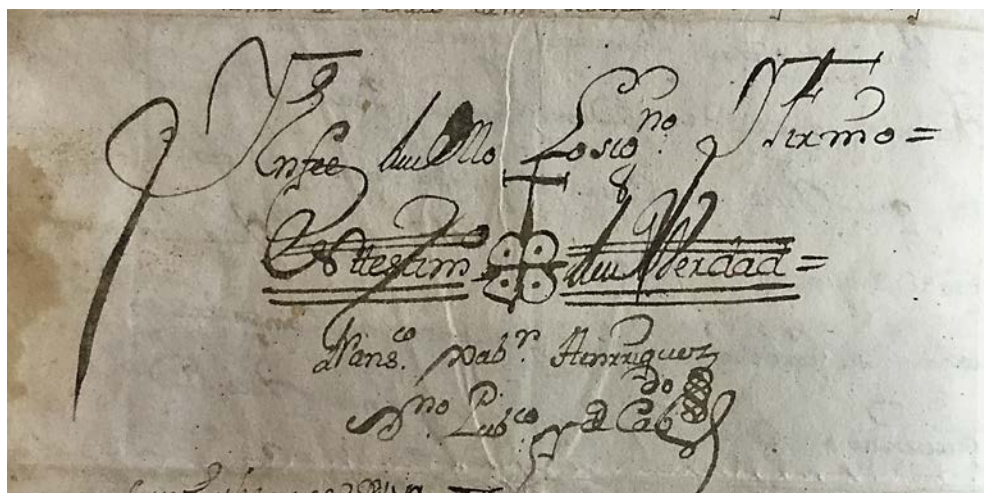 Enfee dello Lo sig.no Y firmo =
En testim.o de Verdad =
Fran.co Xab.r Henrriquez
S.no Pub.co y de Cab.do